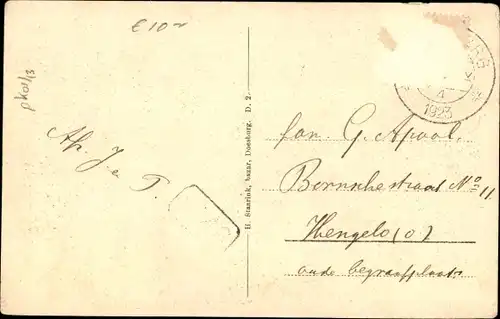 € 10
pk01/13
Af. J en P.
H. Staarink, bazar, Doesburg. D. 2.
4
1923
fam. G. Apool.
Bornschestraat No 11
Hengelo (O)
oude begraafplaats